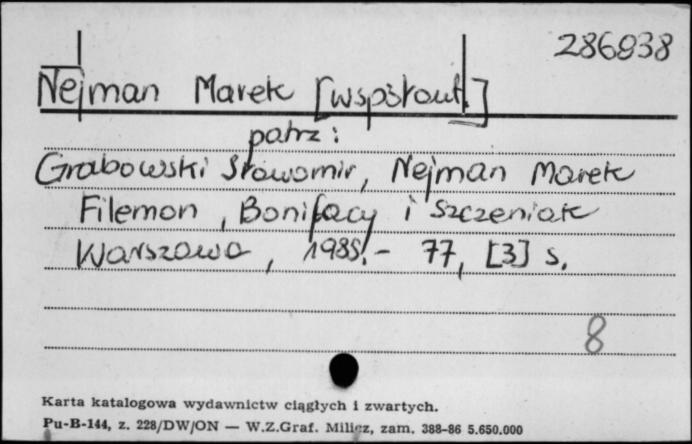 286838
Nejman Marek [współaut.]
patrz:
Grabowski Sławomir, Nejman Marek
Filemon, Bonifacy i Szczeniak
Warszawa, 1985.- 77, [3] s.
8
Karta katalogowa wydawnictw ciągłych i zwartych.
Pu-B-144, z. 228/DW/ON — W.Z.Graf. Milicz, zam. 388-86 5.650.000